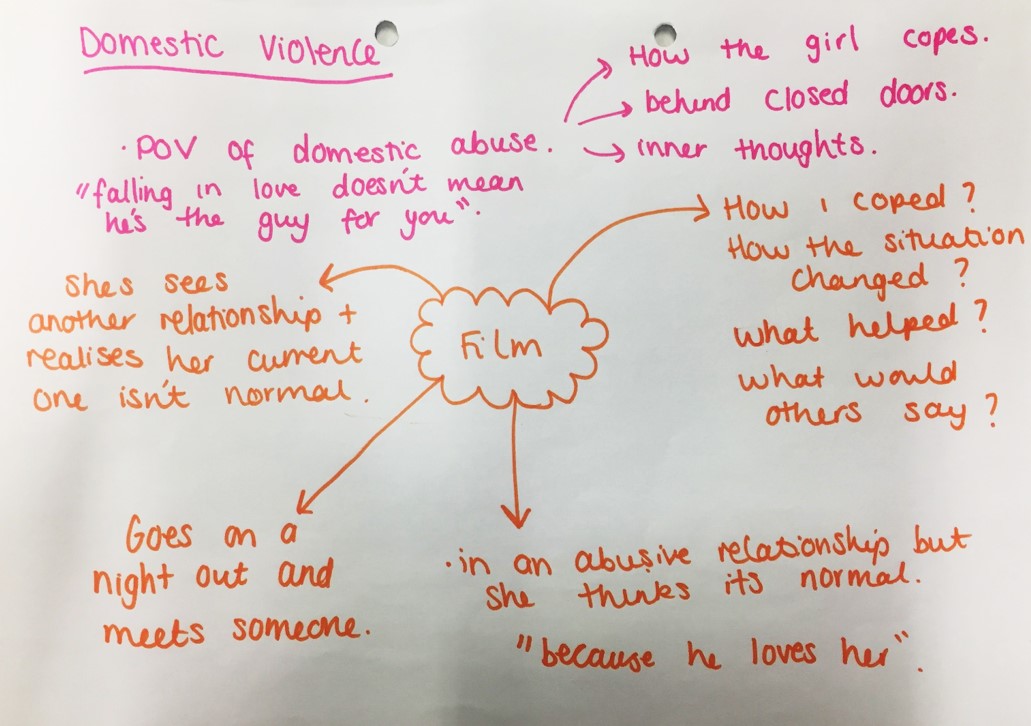 Domestic Violence
· POV of domestic abuse.
"falling in love doesn't mean
he's the guy for you".
How the girl copes.
behind closed doors.
inner thoughts.
Film
How i coped?
How the situation
changed?
what helped?
what would
others say?
shes sees
another relationship +
realises her current
one isn't normal.
Goes on a
night out and
meets someone.
· in an abusive relationship but
she thinks its normal.
"because he loves her".